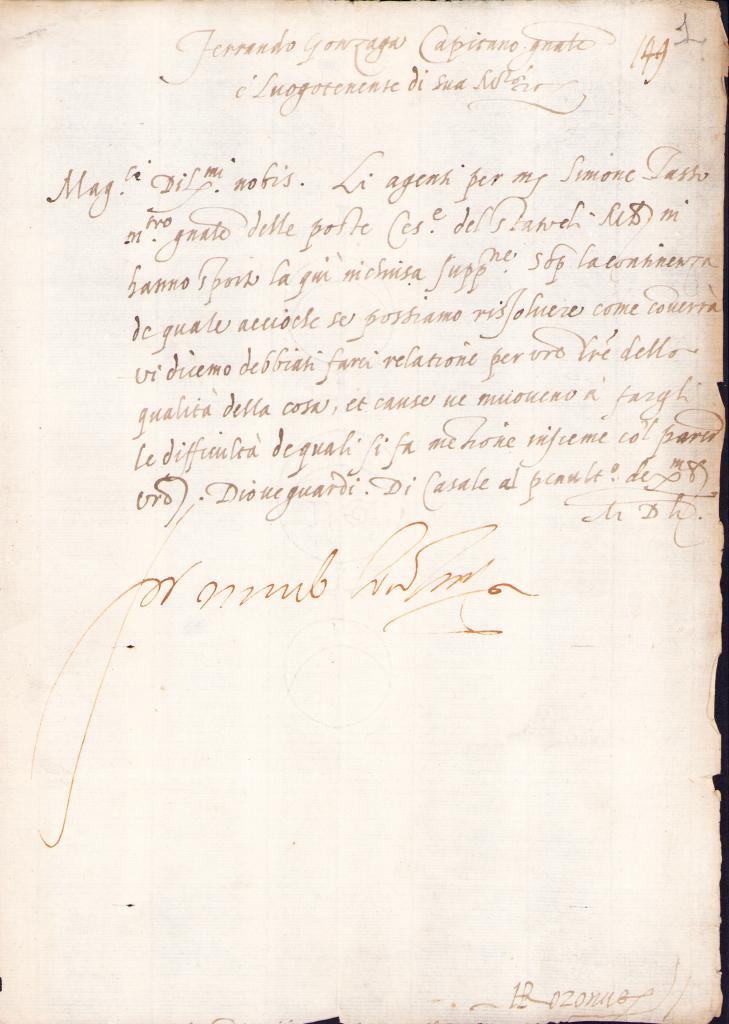 1
149
Ferrando Gonzaga Capitano gnale
é Luogotenente di sua
Mag.ci Dil.mi nobis. Li agenti per mr Simone Tasso
m.ro gnale delle poste Ces.e del stato di
hanno sporto la qui inchiusa supp.ne. Sop la continenza
de quale accioche se possiamo rissoluere come conuerrà
vi dicemo debbiati farci relatione per vre lre della
qualità della cosa, et cause ue muoueno à fargli
le difficultà de quali si fa mentione insieme col parer
vro. Dio ue guardi. Di Casale al penult.o de
M D L